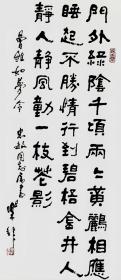 門外綠陰千頃兩兩黃鸝相應
睡起不勝情行到碧梧金井人
靜人靜風動一枝花影
曹組如夢令
同志屬書